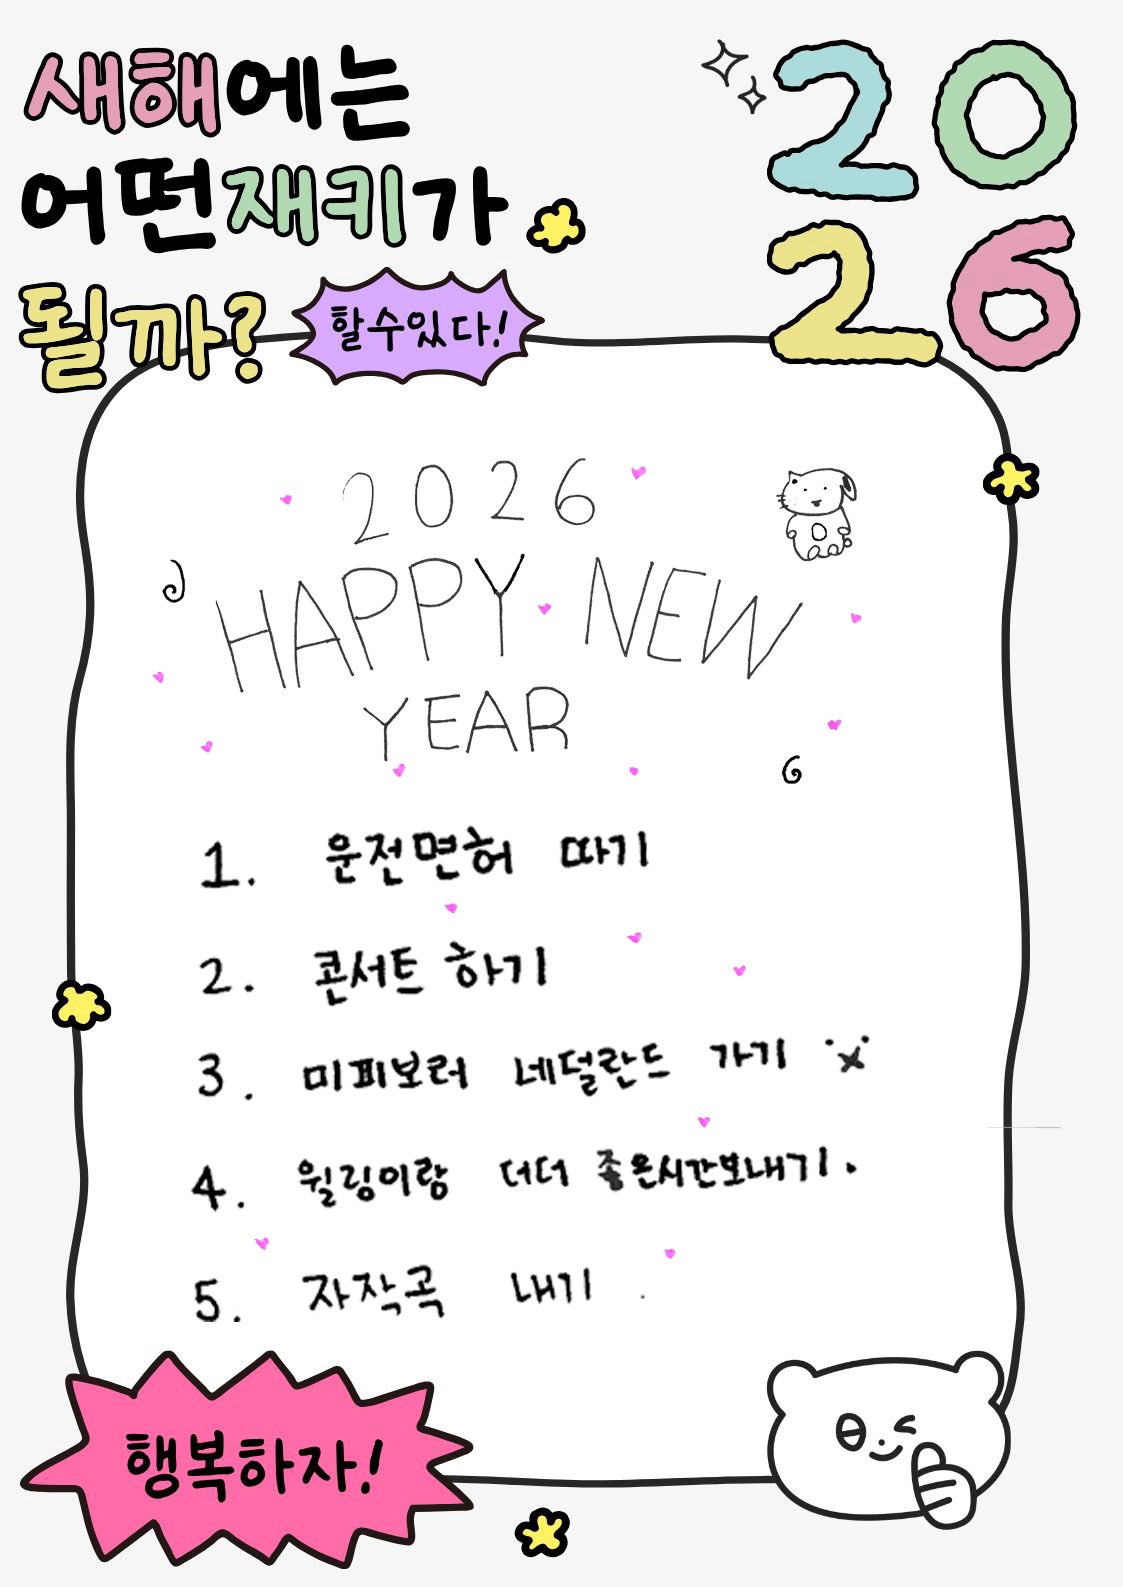 새해에는
어떤재키가
될까?
할수있다!
20
26
2026
HAPPY NEW
YEAR
1. 운전면허 따기
2. 콘서트 하기
3. 미피보러 네덜란드 가기
4. 윌링이랑 더더 좋은시간보내기.
5. 자작곡 내기.
행복하자!